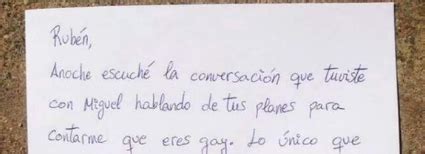 Rubén,
Anoche escuché la conversación que tuviste
con Miguel hablando de tus planes para
contarme que eres gay. Lo único que